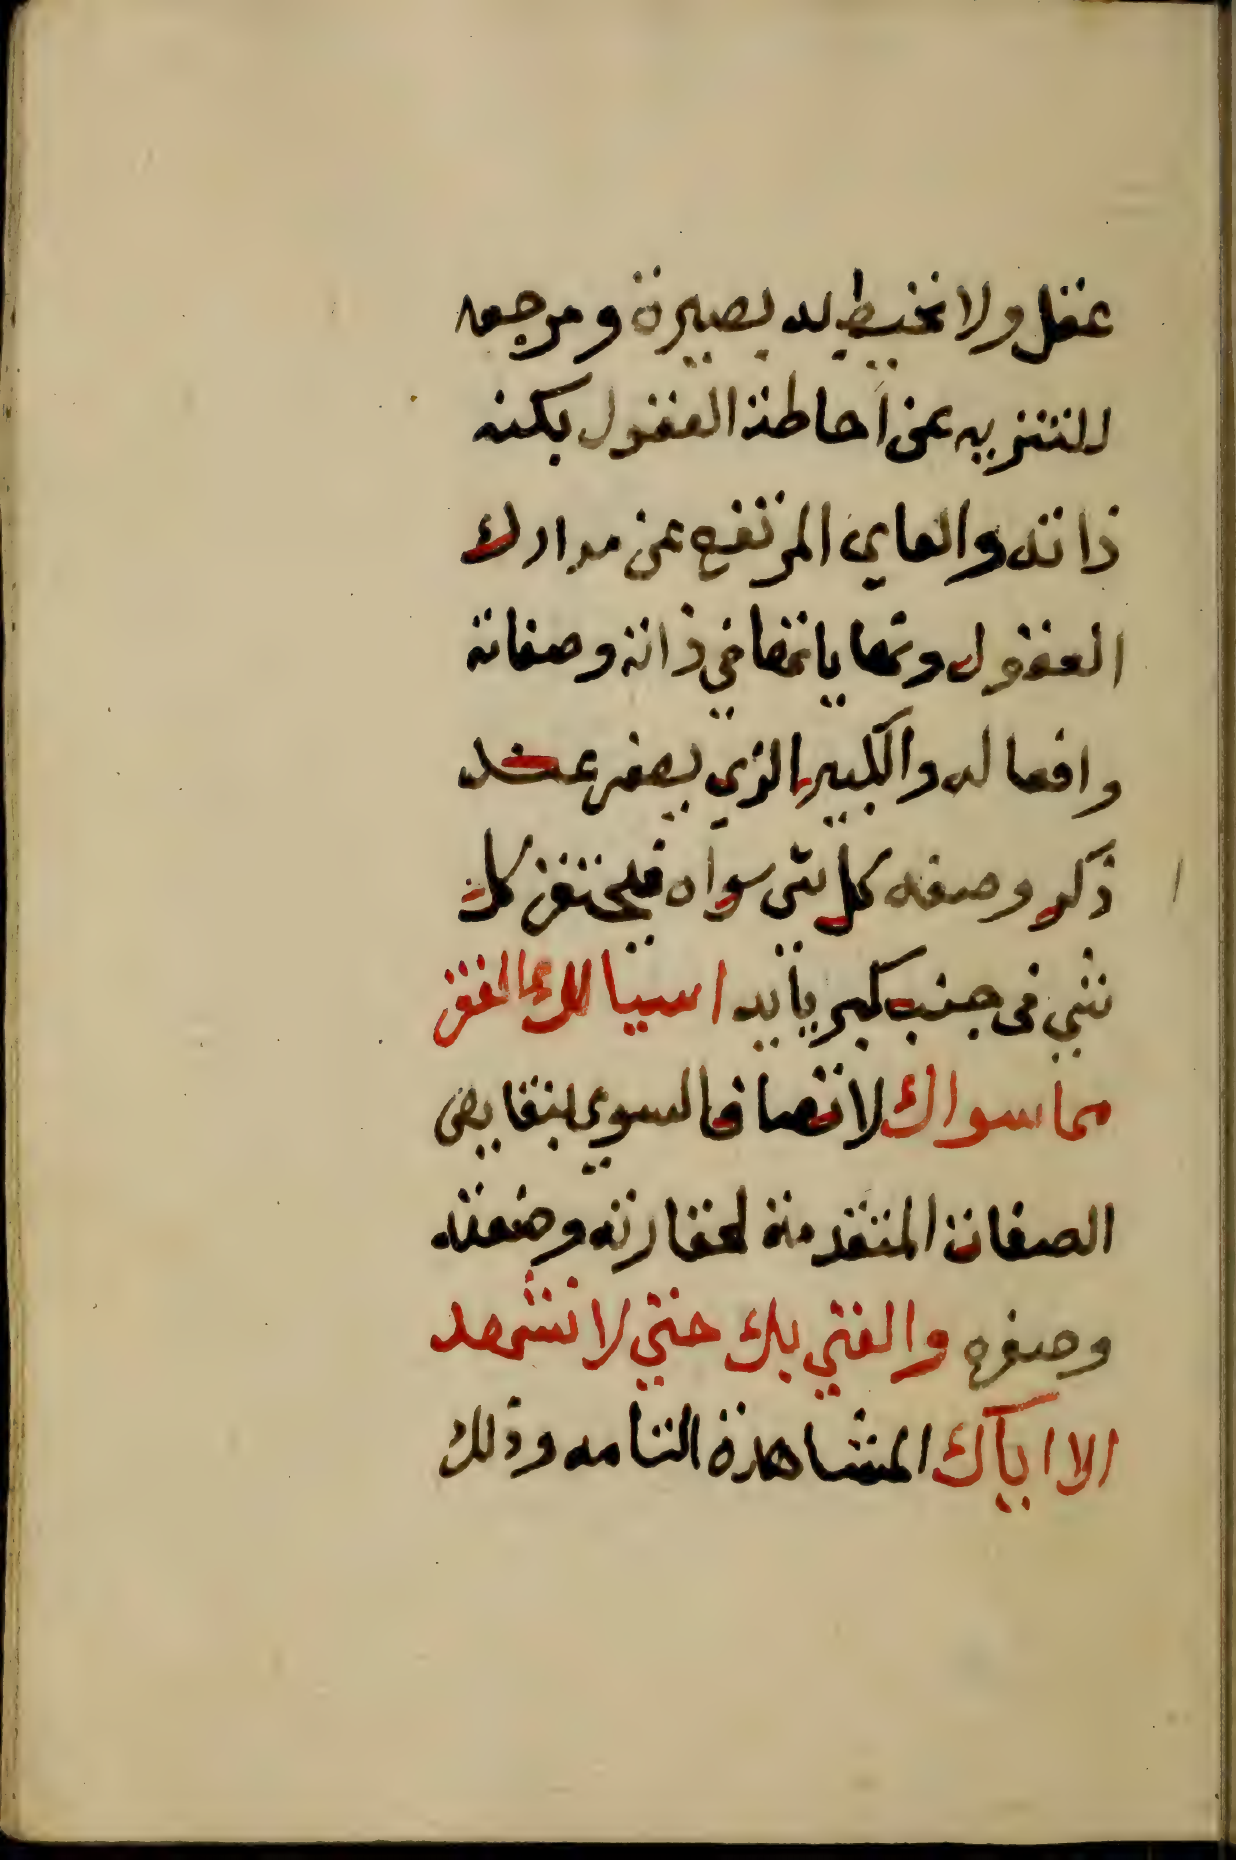 عقل ولا تحيط به بصيرة ومرجعه
للتنزيه عن احاطة العقول بكنه
ذاته والعلي المرتفع عن مدارك
العقول ونهاياتها في ذاته وصفاته
وافعاله والكبير الذي يصغر عند
ذكر وصفه كل شي سواه فيحتقر كل
شي في جنب كبريايه اسيالك الفقر
مما سواك لاتصاف السوي بنقايض
الصفات المتقدمة لحقارته وضعفه
وصغره والغني بك حتي لا نشهد
الا اياك المشاهدة التامه وذلك